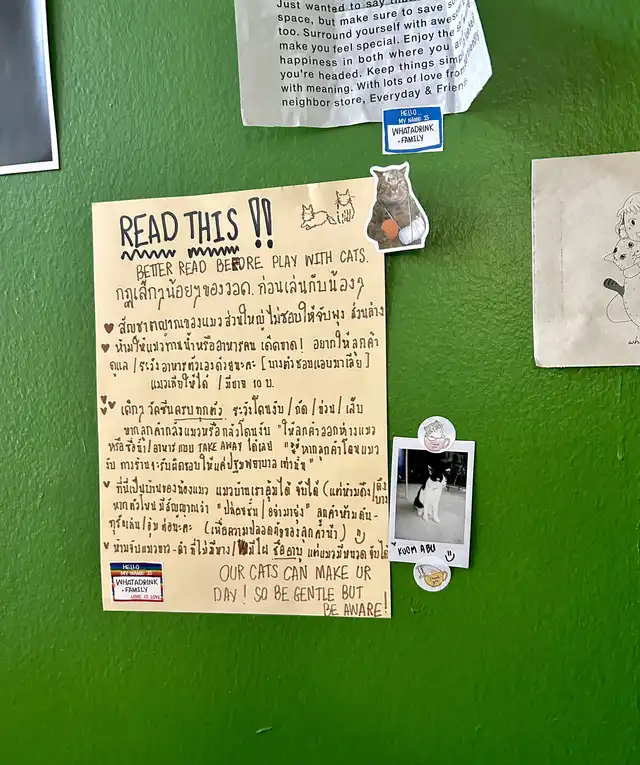 Just wanted to say tha
space, but make sure to save s
too. Surround yourself with awes
make you feel special. Enjoy the
happiness in both where you a
you're headed. Keep things simp
with meaning. With lots of love from
neighbor store, Everyday & Frien
HELLO
MY NAME IS
WHATADRINK
+ FAMILY
READ THIS !!
BETTER READ BEFORE PLAY WITH CATS.
กฎเล็กๆน้อยๆของวอด. ก่อนเล่นกับน้องๆ
สัญชาตญาณของแมว ส่วนใหญ่ ไม่ชอบให้จับพุง ส่วนล่าง
ห้ามให้แมวทานน้ำหรืออาหารคน เด็ดขาด! อยากให้ลูกค้า
ดูแล / ระวังอาหารตัวเองด้วยนะคะ [บางตัวชอบแอบมาเลีย]
แมวเลียให้ได้ / มีขาย 10 บ.
เด็กๆ วัคซีนครบทุกตัว ระวังโดนงับ / กัด / ข่วน / เล็บ
หากลูกค้ากลัวแมวหรือกลัวโดนงับ "ให้ลูกค้าออกห่างแมว
หรือ ซื้อน้ำ/อาหาร แบบ TAKE AWAY ได้เลย "หากลูกค้าโดนแมว
งับ ทางร้านจะรับผิดชอบให้แค่ปฐมพยาบาล เท่านั้น"
ที่นี่เป็นบ้านของน้องแมว แมวบ้านเราอุ้มได้ จับได้ (แต่ห้ามดึง/
หากตัวไหน มีสัญญาณว่า "ปล่อยฉัน / อย่ามายุ่ง" ลูกค้าห้าม
เล่น/อุ้ม ต่อนะคะ (เพื่อความปลอดภัยของลูกค้าน้า)
ห้ามจับแมวขาว-ดำ ที่ไม่มีหาง/มีไฝ ชื่ออาบู
HELLO
MY NAME IS
WHATADRINK
+ FAMILY
LOVE IS LOVE
OUR CATS CAN MAKE UR
DAY! SO BE GENTLE BUT
BE AWARE!
KUOM ABU